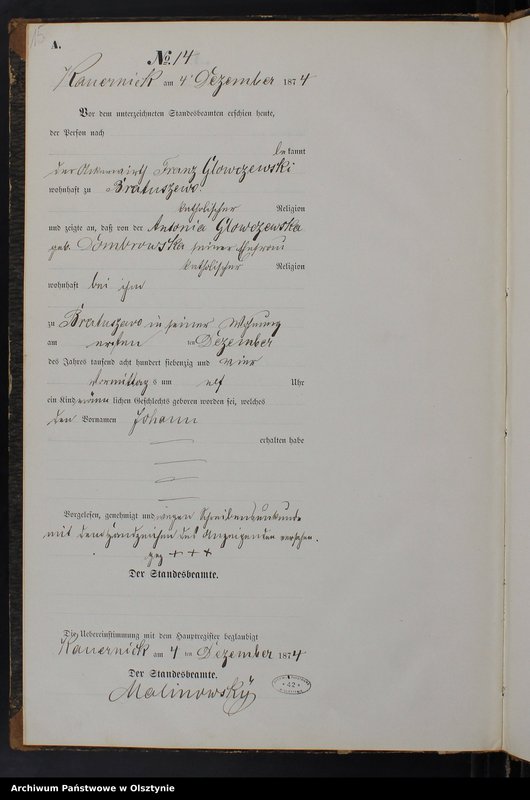 15
A.
No. 14
Kauernick am 4 Dezember 1874
Vor dem unterzeichneten Standesbeamten erschien heute,
der Person nach
bekannt
der Ackerwirth Franz Glowczewski
wohnhaft zu Bratuszewo
katholischer Religion
und zeigte an, daß von der Antonia Glowczewska
geb. Dombrowska seiner Ehefrau
katholischer Religion
wohnhaft bei ihm
zu Bratuszewo in seiner Wohnung
am ersten ten Dezember
des Jahres tausend acht hundert siebenzig und vier
Vormittags um elf Uhr
ein Kind männlichen Geschlechts geboren worden sei, welches
den Vornamen Johann
erhalten habe
Vorgelesen, genehmigt und wegen Schreibensunkunde
mit dem Handzeichen des Anzeigenden versehen.
gez + + +
Der Standesbeamte.
Die Uebereinstimmung mit dem Hauptregister beglaubigt
Kauernick am 4 ten Dezember 1874
Der Standesbeamte.
Malinowsky
42
Archiwum Państwowe w Olsztynie